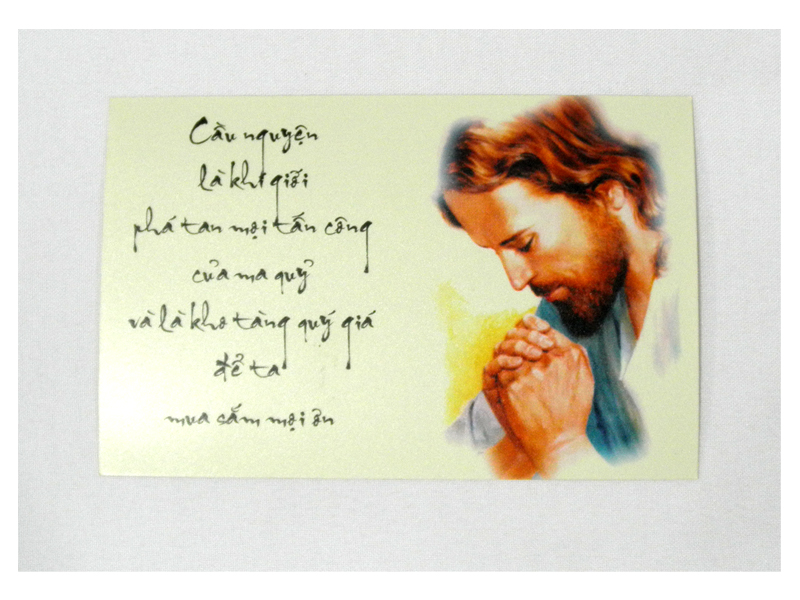 Cầu nguyện
là khí giới
phá tan mọi tấn công
của ma quỷ
và là kho tàng quý giá
để ta
mua sắm mọi ơn